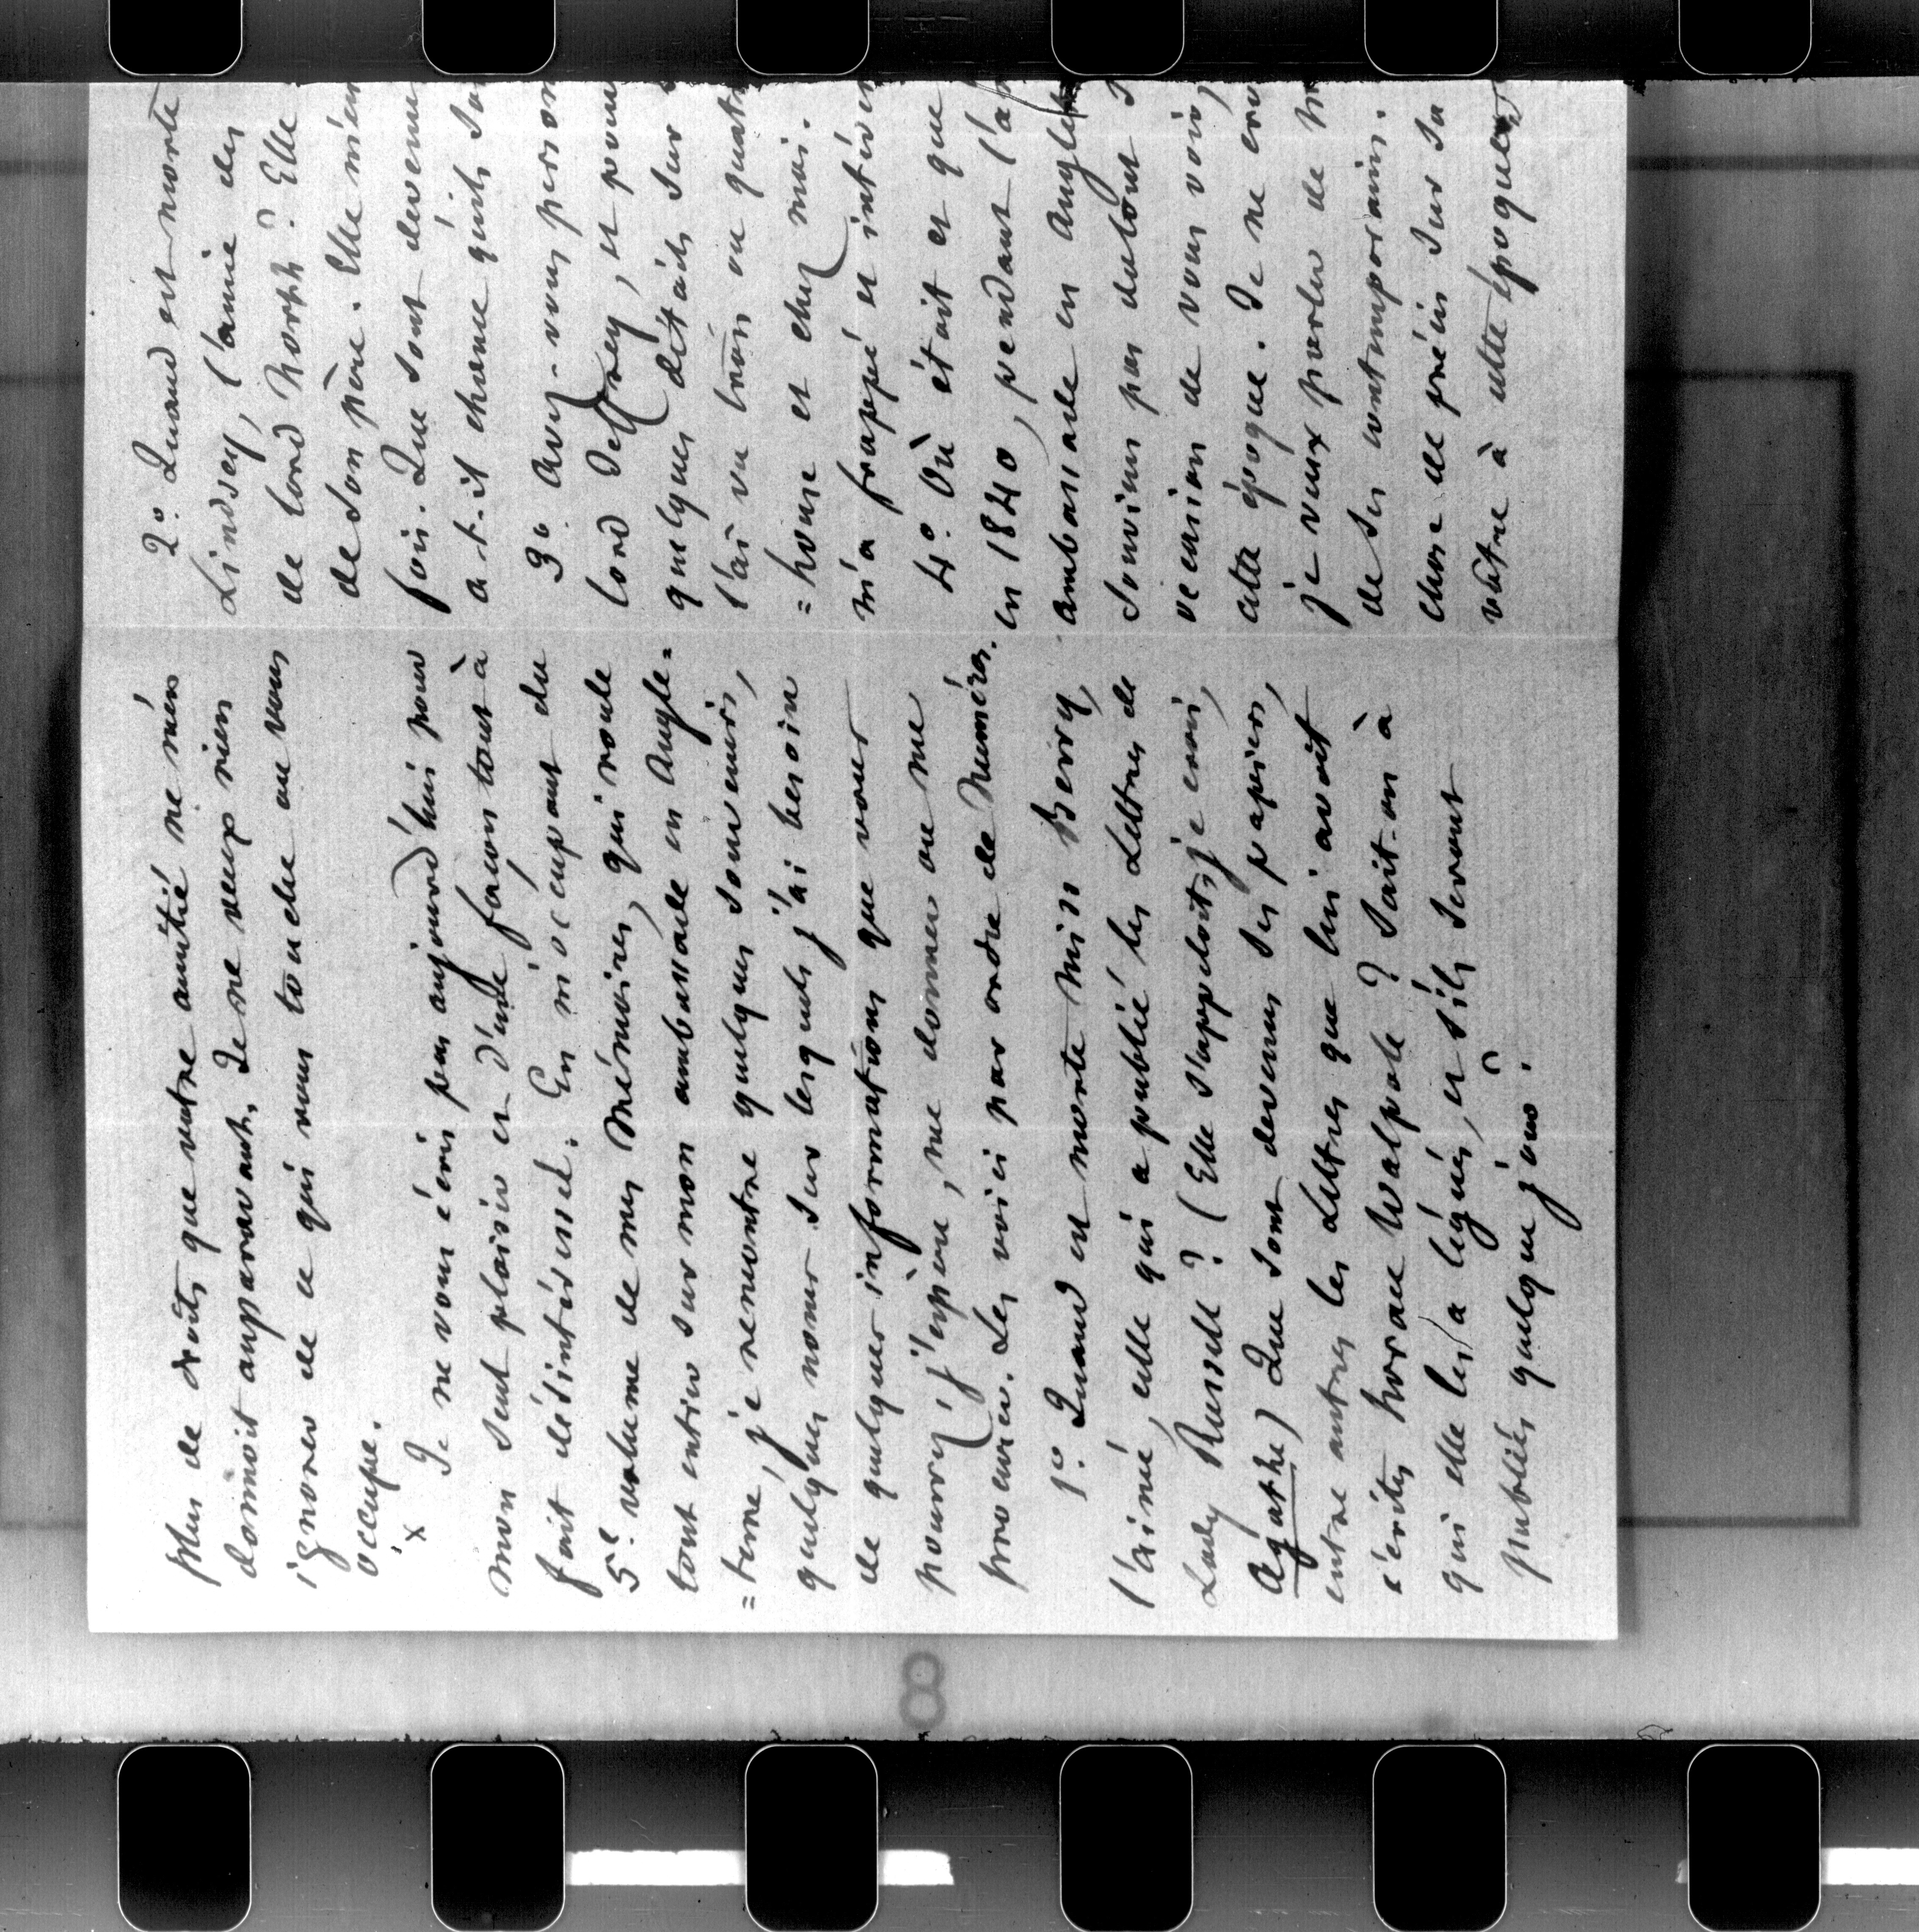 plus de droits que votre amitié ne m'en
donnoit auparavant. Je ne veux rien
ignorer de ce qui vous touche ou vous
occupe.
x Je ne vous écris pas aujourd'hui pour
mon seul plaisir et d'une façon tout à
fait désintéressée. En m'occupant du
5e. volume de mes Mémoires, qui roule
tout entier sur mon ambassade en Angle=
=terre, je rencontre quelques souvenirs,
quelques noms sur lesquels j'ai besoin
de quelques informations que vous
pourrez, j'espère, me donner ou me
procurer. Les voici par ordre de Numéros.
1º. Quand est morte Miss Berry,
l'aînée, celle qui a publié les Lettres de
Lady Russell ? (Elle s'appeloit, je crois,
Agathe) Que sont devenus ses papiers,
entre autres les Lettres que lui avoit
écrites horace Walpole ? Sait-on à
qui elle les a légués, et s'ils seront
publiés quelque jour ?
2º. Quand est morte
Lindsey, l'amie des
de lord North ? Elle
de son père. Elle m'en
fois. Que sont devenu
a-t-il chance qu'ils so
3º. Avez-vous person
lord Jeffrey, et pour
quelques détails sur
l'ai vu trois ou quatr
=house et chez moi.
m'a frappé et intéres
4º. Où étoit et que
en 1840, pendant l'a
ambassade en Anglet
souviens pas du tout d
occasion de vous voir,
cette époque. Je ne cro
je veux parler de M
de ses contemporains.
chose de précis sur sa
vôtre à cette époque